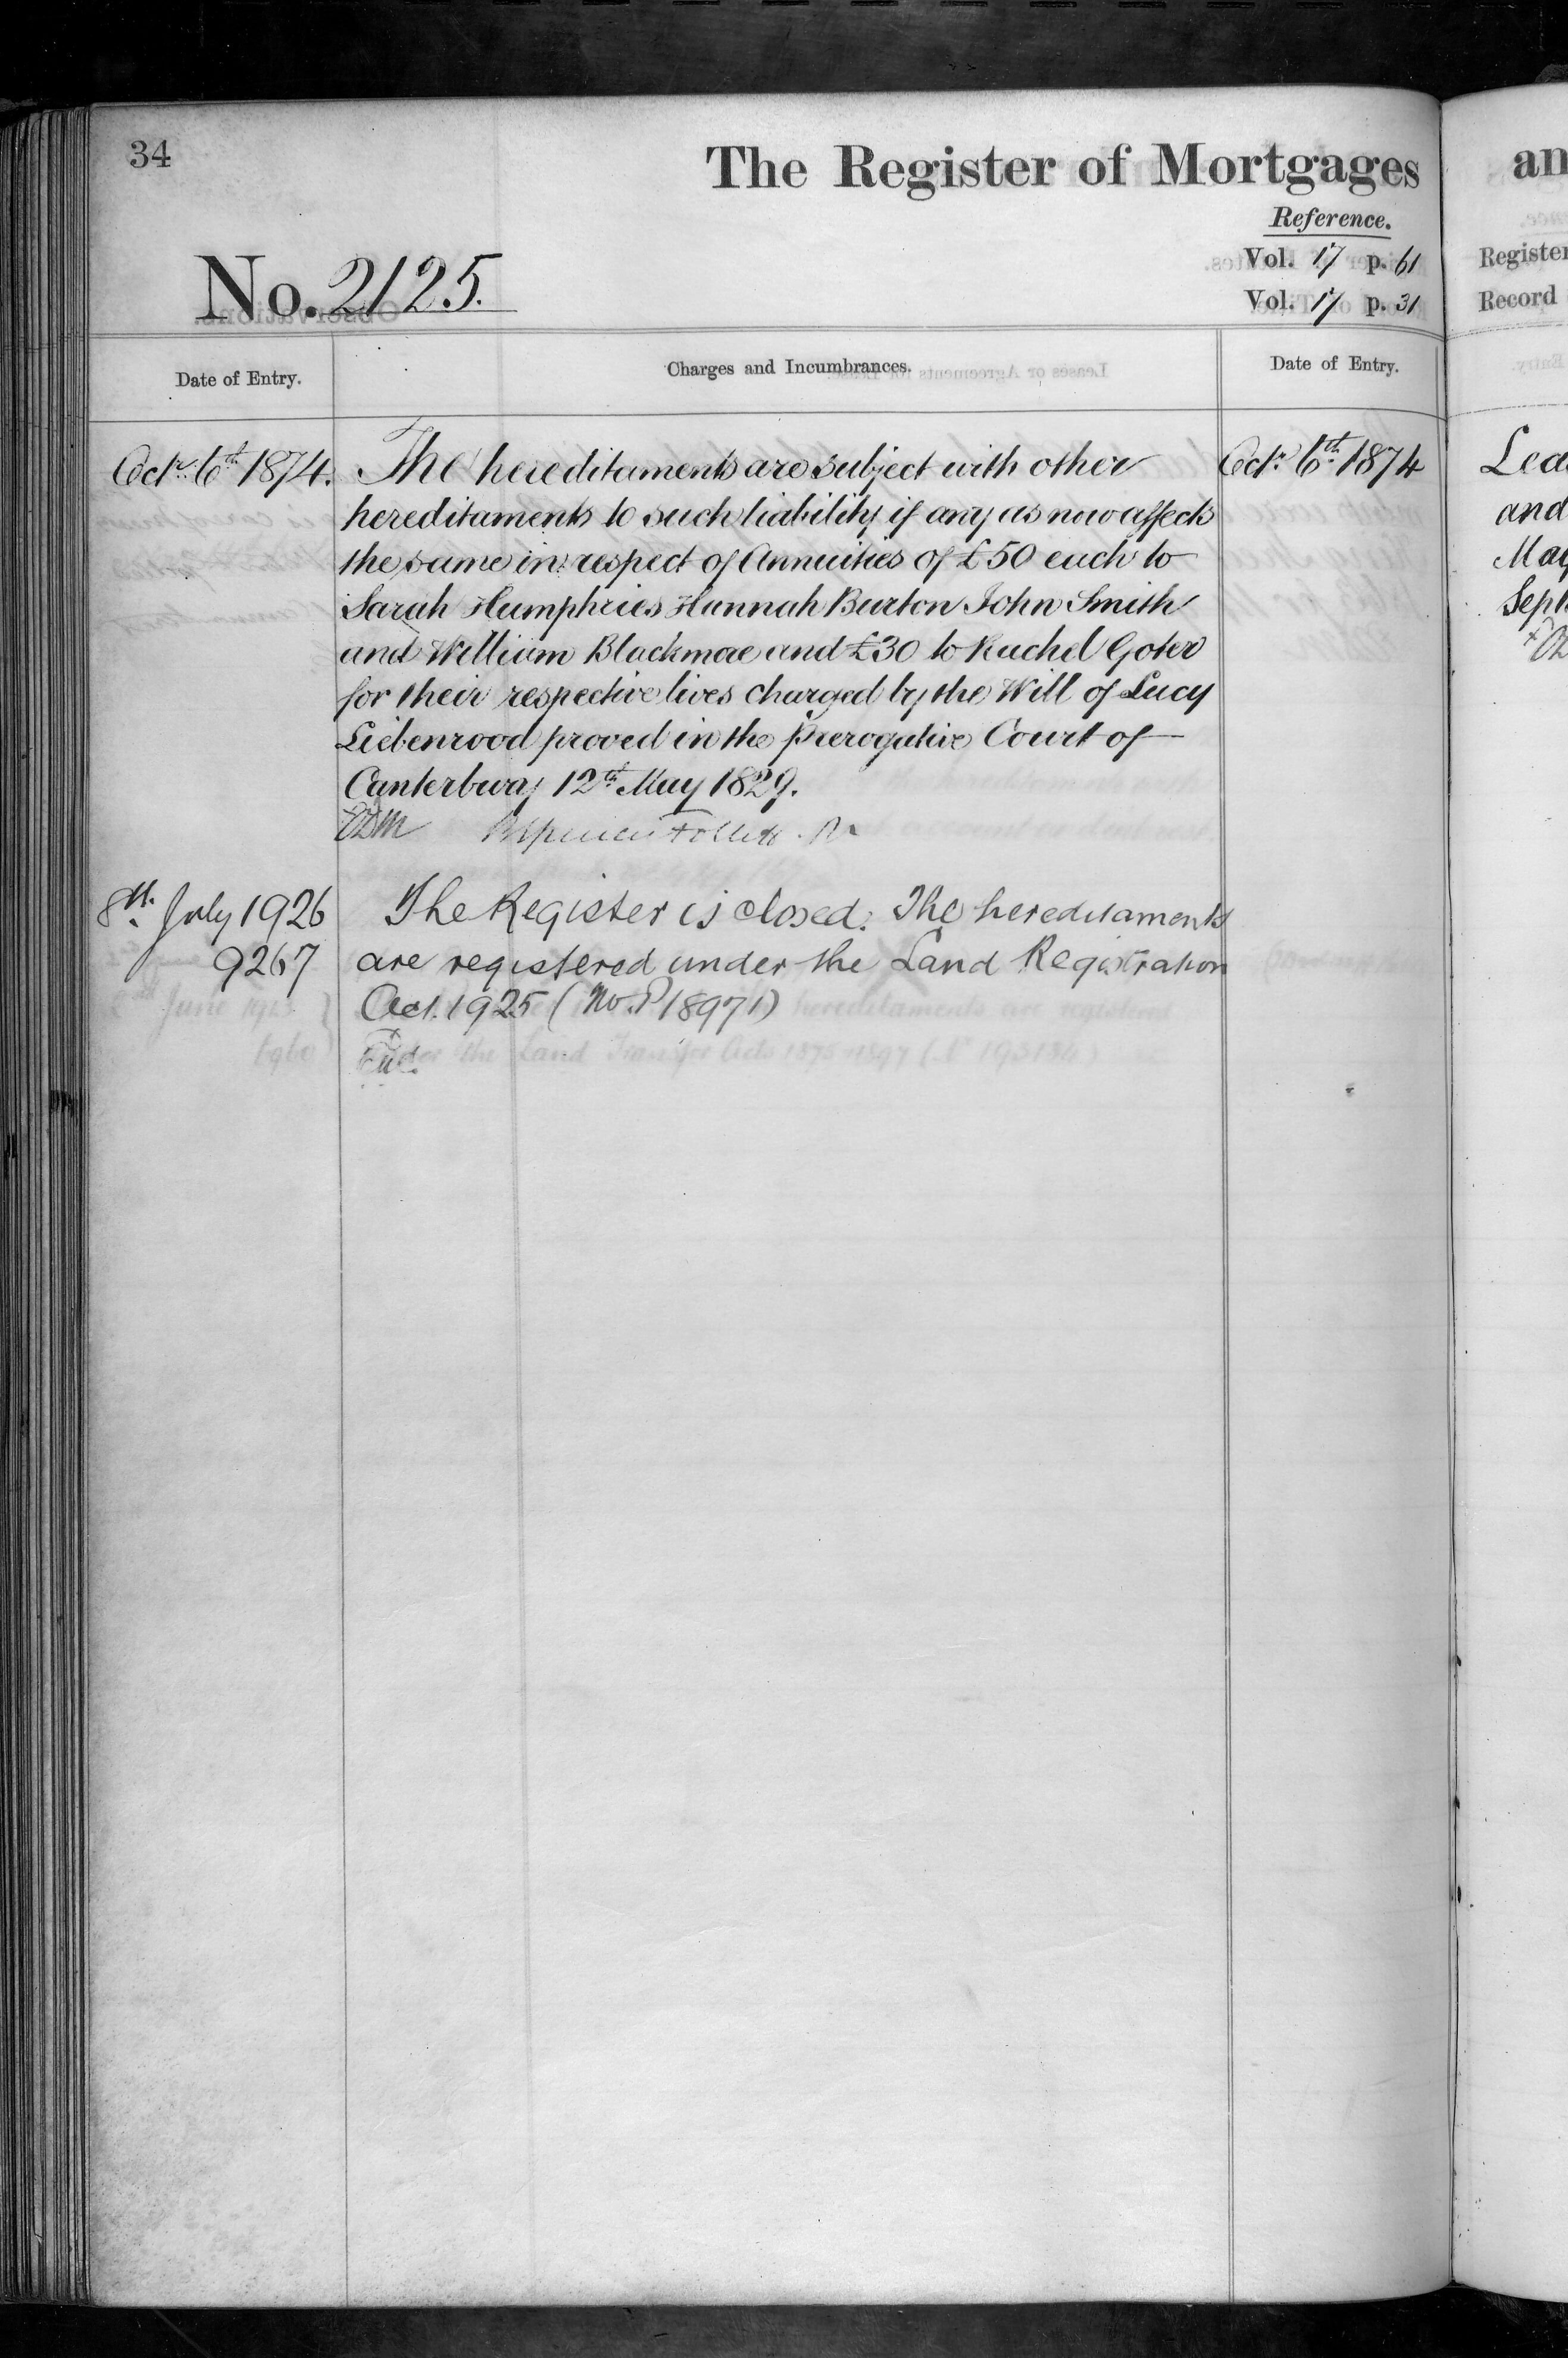 34
The Register of Mortgages
Reference.
No. 2125.
Vol. 17 p. 61
Vol. 17 p. 31
Date of Entry.
Charges and Incumbrances.
Date of Entry.
Octr. 6th 1874.
The hereditaments are subject with other
hereditaments to such liability if any as now affects
the same in respect of Annuities of £50 each to
Sarah Humphries Hannah Burton John Smith
and William Blackmae and £30 to Rachel Goter
for their respective lives charged by the Will of Lucy
Liebenrood proved in the Prerogative Court of
Canterbury 12th May 1829.
Octr. 6th 1874
8th July 1926
9267
The Register is closed. The hereditaments
are registered under the Land Registration
Act. 1925 (No. P18971)
an
Register
Record
Lea
and
May
Sept